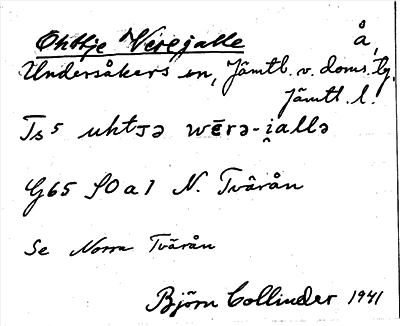 Ohttje Vierejalle å,
Undersåkers sn, Jämtl. v. doms. tg.
Jämtl. l.
Ts⁵ uhtɟə wērə-i̯allə
G65 S0a1 N. Tvärån
Se Norra Tvärån
Björn Collinder 1941